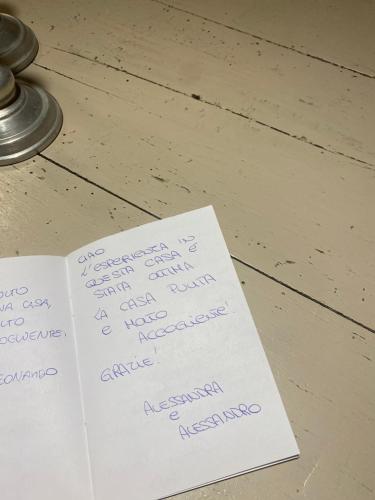 OLTO
NA CASA,
LTO
OGLIENTE,
LEONARDO
CIAO
L'ESPERIENZA IN
QUESTA CASA È
STATA OTTIMA
LA CASA PULITA
E MOLTO
ACCOGLIENTE!
GRAZIE!
ALESSANDRA
e
ALESSANDRO